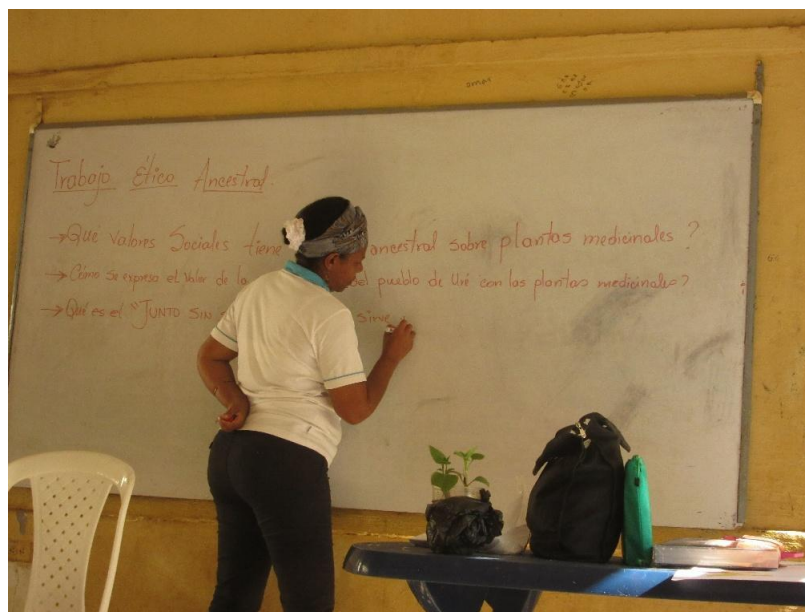 omar
Trabajo Ético Ancestral.
→Qué valores Sociales tiene ancestral sobre plantas medicinales?
→Cómo se expresa el valor de la del pueblo de Uré con las plantas medicinales?
→Qué es el "JUNTO SIN sirve